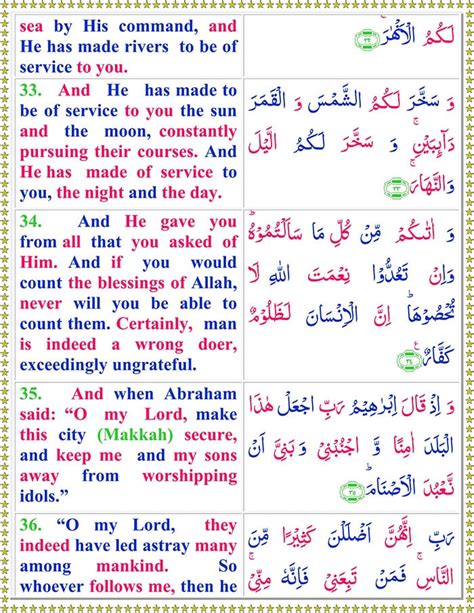 sea by His command, and
He has made rivers to be of
service to you.
لَكُمُ الْاَنْهٰرَ ۚ ﴿۳۲﴾
33. And He has made to
be of service to you the sun
and the moon, constantly
pursuing their courses. And
He has made of service to
you, the night and the day.
وَ سَخَّرَ لَكُمُ الشَّمْسَ وَ الْقَمَرَ
دَآىِٕبَيْنِ ۚ وَ سَخَّرَ لَكُمُ الَّيْلَ
وَالنَّهَارَ ۚ ﴿۳۳﴾
34. And He gave you
from all that you asked of
Him. And if you would
count the blessings of Allah,
never will you be able to
count them. Certainly, man
is indeed a wrong doer,
exceedingly ungrateful.
وَ اٰتٰىكُمْ مِّنْ كُلِّ مَا سَاَلْتُمُوْهُ ؕ
وَاِنْ تَعُدُّوْا نِعْمَتَ اللّٰهِ لَا
تُحْصُوْهَا ؕ اِنَّ الْاِنْسَانَ لَظَلُوْمٌ
كَفَّارٌ ﴿۳۴﴾
35. And when Abraham
said: “O my Lord, make
this city (Makkah) secure,
and keep me and my sons
away from worshipping
idols.”
وَ اِذْ قَالَ اِبْرٰهِيْمُ رَبِّ اجْعَلْ هٰذَا
الْبَلَدَ اٰمِنًا وَّ اجْنُبْنِيْ وَ بَنِيَّ اَنْ
نَّعْبُدَ الْاَصْنَامَ ؕ ﴿۳۵﴾
36. “O my Lord, they
indeed have led astray many
among mankind. So
whoever follows me, then he
رَبِّ اِنَّهُنَّ اَضْلَلْنَ كَثِيْرًا مِّنَ
النَّاسِ ۚ فَمَنْ تَبِعَنِيْ فَاِنَّهٗ مِنِّيْ ۚ